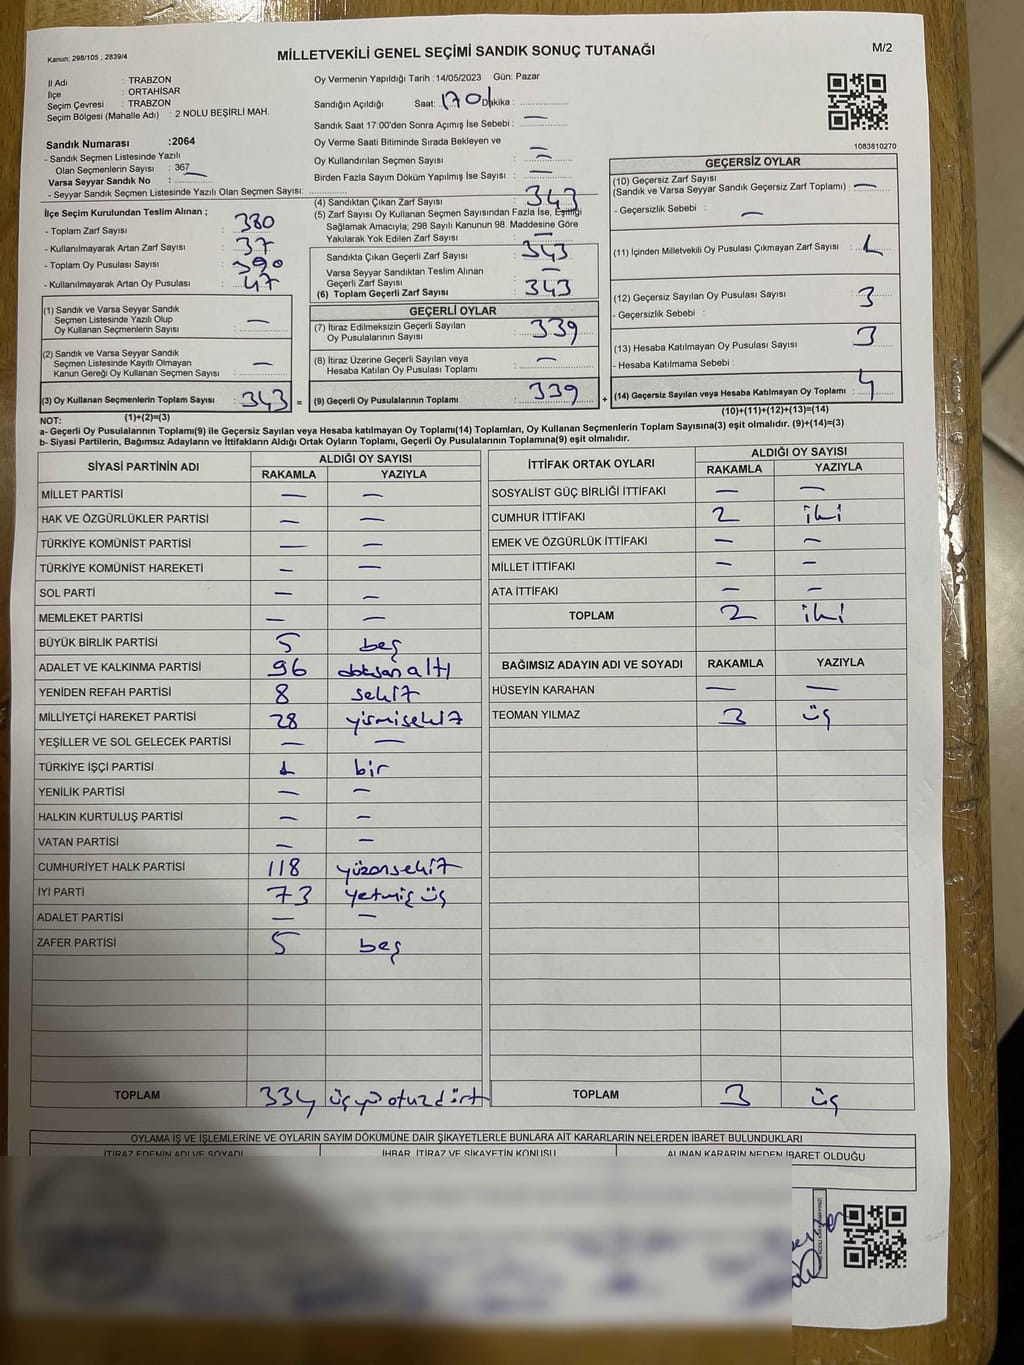 Kanun; 298/105 , 2839/4
MİLLETVEKİLİ GENEL SEÇİMİ SANDIK SONUÇ TUTANAĞI
M/2
İl Adı : TRABZON
İlçe : ORTAHİSAR
Seçim Çevresi : TRABZON
Seçim Bölgesi (Mahalle Adı) : 2 NOLU BEŞİRLİ MAH.
Sandık Numarası :2064
- Sandık Seçmen Listesinde Yazılı
Olan Seçmenlerin Sayısı : 367
Varsa Seyyar Sandık No : —
- Seyyar Sandık Seçmen Listesinde Yazılı Olan Seçmen Sayısı:
Oy Vermenin Yapıldığı Tarih :14/05/2023 Gün: Pazar
Sandığın Açıldığı Saat: Dakika :
Sandık Saat 17:00'den Sonra Açımış İse Sebebi : —
Oy Verme Saati Bitiminde Sırada Bekleyen ve
Oy Kullandırılan Seçmen Sayısı : —
Birden Fazla Sayım Döküm Yapılmış İse Sayısı : —
1083810270
İlçe Seçim Kurulundan Teslim Alınan ;
- Toplam Zarf Sayısı : 380
- Kullanılmayarak Artan Zarf Sayısı : 37
- Toplam Oy Pusulası Sayısı : 390
- Kullanılmayarak Artan Oy Pusulası : 47
(1) Sandık ve Varsa Seyyar Sandık
Seçmen Listesinde Yazılı Olup
Oy Kullanan Seçmenlerin Sayısı : —
(2) Sandık ve Varsa Seyyar Sandık
Seçmen Listesinde Kayıtlı Olmayan
Kanun Gereği Oy Kullanan Seçmen Sayısı : —
(3) Oy Kullanan Seçmenlerin Toplam Sayısı : 343 =
(1)+(2)=(3)
(4) Sandıktan Çıkan Zarf Sayısı : 343
(5) Zarf Sayısı Oy Kullanan Seçmen Sayısından Fazla İse, Eşitliği
Sağlamak Amacıyla; 298 Sayılı Kanunun 98. Maddesine Göre
Yakılarak Yok Edilen Zarf Sayısı : —
Sandıkta Çıkan Geçerli Zarf Sayısı : 343
Varsa Seyyar Sandıktan Teslim Alınan
Geçerli Zarf Sayısı : —
(6) Toplam Geçerli Zarf Sayısı : 343
GEÇERLİ OYLAR
(7) İtiraz Edilmeksizin Geçerli Sayılan
Oy Pusulalarının Sayısı : 339
(8) İtiraz Üzerine Geçerli Sayılan veya
Hesaba Katılan Oy Pusulası Toplamı : —
(9) Geçerli Oy Pusulalarının Toplamı : 339 +
GEÇERSİZ OYLAR
(10) Geçersiz Zarf Sayısı
(Sandık ve Varsa Seyyar Sandık Geçersiz Zarf Toplamı) : —
- Geçersizlik Sebebi : —
(11) İçinden Milletvekili Oy Pusulası Çıkmayan Zarf Sayısı : 1
(12) Geçersiz Sayılan Oy Pusulası Sayısı : 3
- Geçersizlik Sebebi :
(13) Hesaba Katılmayan Oy Pusulası Sayısı : 3
- Hesaba Katılmama Sebebi :
(14) Geçersiz Sayılan veya Hesaba Katılmayan Oy Toplamı : 4
(10)+(11)+(12)+(13)=(14)
NOT:
a- Geçerli Oy Pusulalarının Toplamı(9) ile Geçersiz Sayılan veya Hesaba katılmayan Oy Toplamı(14) Toplamları, Oy Kullanan Seçmenlerin Toplam Sayısına(3) eşit olmalıdır. (9)+(14)=(3)
b- Siyasi Partilerin, Bağımsız Adayların ve İttifakların Aldığı Ortak Oyların Toplamı, Geçerli Oy Pusulalarının Toplamına(9) eşit olmalıdır.
SİYASİ PARTİNİN ADI ALDIĞI OY SAYISI
RAKAMLA YAZIYLA
MİLLET PARTİSİ — —
HAK VE ÖZGÜRLÜKLER PARTİSİ — —
TÜRKİYE KOMÜNİST PARTİSİ — —
TÜRKİYE KOMÜNİST HAREKETİ — —
SOL PARTİ — —
MEMLEKET PARTİSİ — —
BÜYÜK BİRLİK PARTİSİ 5 beş
ADALET VE KALKINMA PARTİSİ 96 doksan altı
YENİDEN REFAH PARTİSİ 8 sekiz
MİLLİYETÇİ HAREKET PARTİSİ 28 yirmisekiz
YEŞİLLER VE SOL GELECEK PARTİSİ — —
TÜRKİYE İŞÇİ PARTİSİ 1 bir
YENİLİK PARTİSİ — —
HALKIN KURTULUŞ PARTİSİ — —
VATAN PARTİSİ — —
CUMHURİYET HALK PARTİSİ 118 yüzonsekiz
İYİ PARTİ 73 yetmiş üç
ADALET PARTİSİ — —
ZAFER PARTİSİ 5 beş
TOPLAM 334 üçyüz otuzdört
İTTİFAK ORTAK OYLARI ALDIĞI OY SAYISI
RAKAMLA YAZIYLA
SOSYALİST GÜÇ BİRLİĞİ İTTİFAKI — —
CUMHUR İTTİFAKI 2 iki
EMEK VE ÖZGÜRLÜK İTTİFAKI — —
MİLLET İTTİFAKI — —
ATA İTTİFAKI — —
TOPLAM 2 iki
BAĞIMSIZ ADAYIN ADI VE SOYADI RAKAMLA YAZIYLA
HÜSEYİN KARAHAN — —
TEOMAN YILMAZ 3 üç
TOPLAM 3 üç
OYLAMA İŞ VE İŞLEMLERİNE VE OYLARIN SAYIM DÖKÜMÜNE DAİR ŞİKAYETLERLE BUNLARA AİT KARARLARIN NELERDEN İBARET BULUNDUKLARI
İTİRAZ EDENİN ADI VE SOYADI İHBAR, İTİRAZ VE ŞİKAYETİN KONUSU ALINAN KARARIN NEDEN İBARET OLDUĞU